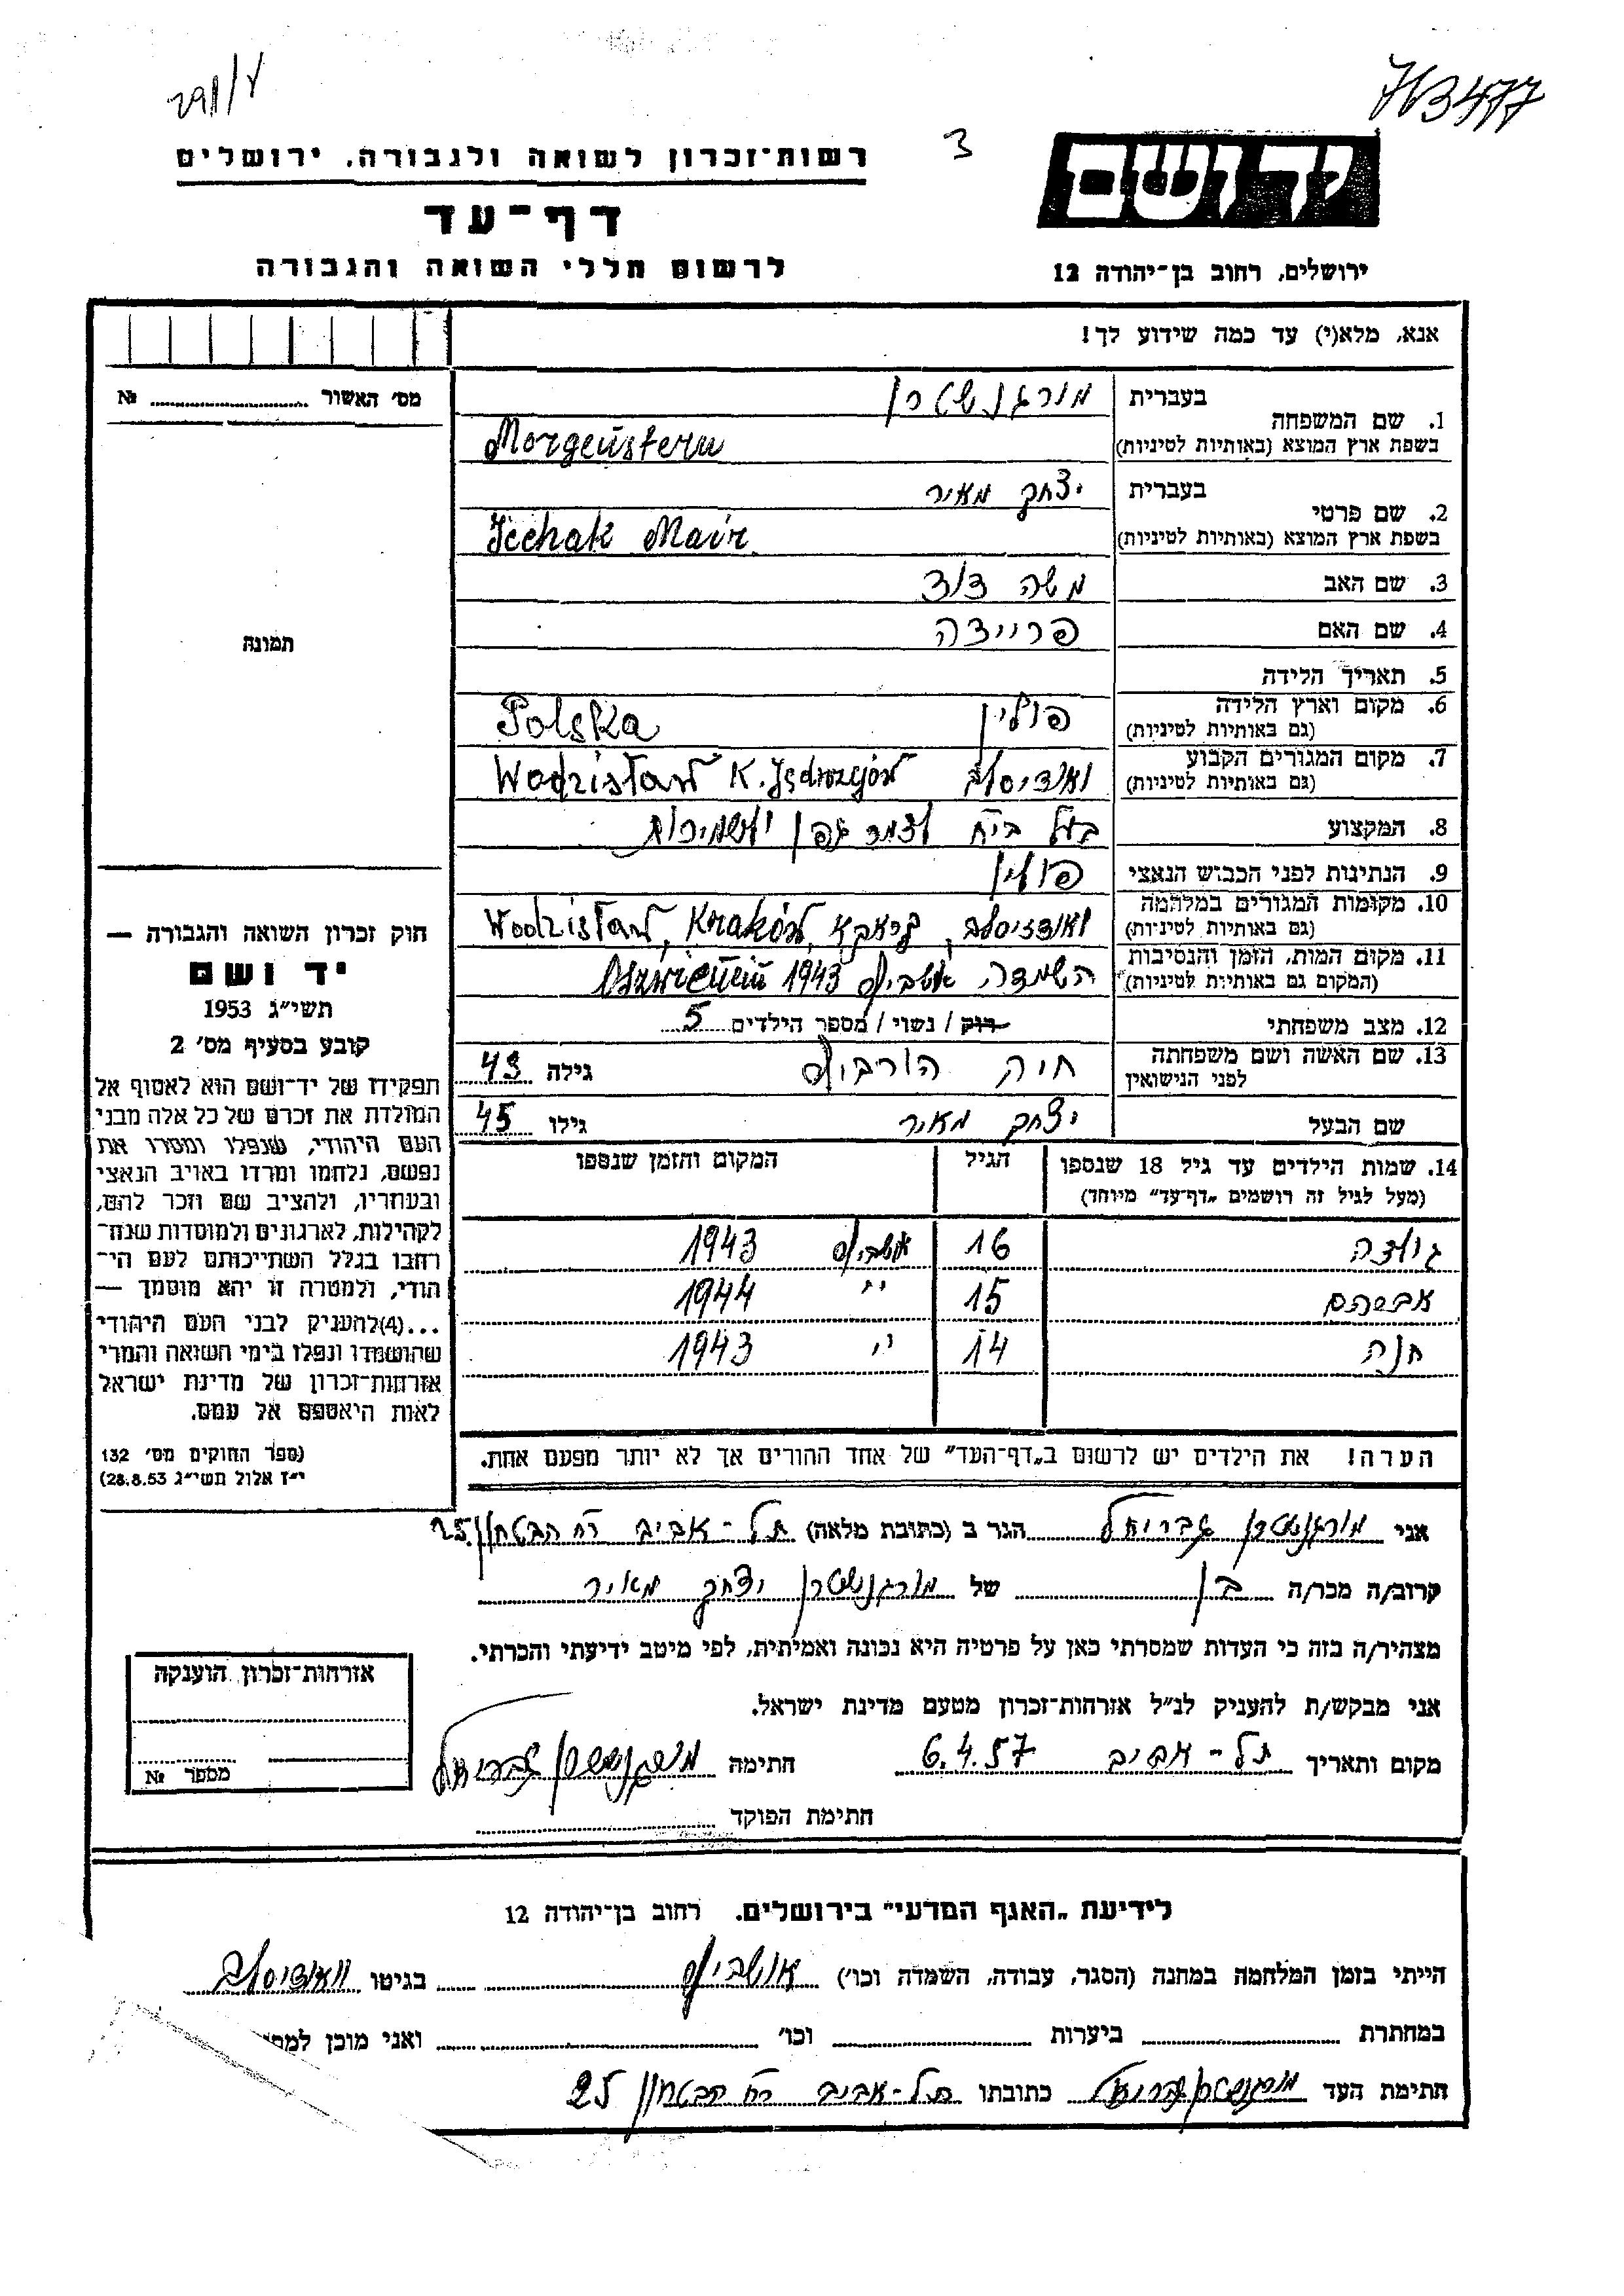 291/7
713477
3
רשות־זכרון לשואה ולגבורה, ירושלים
יד ושם
דף־עד
לרשום חללי השואה והגבורה
ירושלים, רחוב בן־יהודה 12
אנא, מלא(י) עד כמה שידוע לך!
מס' האשור № 
1. שם המשפחה
בעברית מורגנשטרן
בשפת ארץ המוצא (באותיות לטיניות) Morgenstern
2. שם פרטי
בעברית יצחק מאיר
בשפת ארץ המוצא (באותיות לטיניות) Icchak Mair
3. שם האב משה דוד
4. שם האם פריידה
5. תאריך הלידה
6. מקום וארץ הלידה פולין Polska
(גם באותיות לטיניות)
7. מקום המגורים הקבוע Wodzisław K. Jędrzejów
(גם באותיות לטיניות)
8. המקצוע בעל בי"ח לצמר גפן ושמיכות
9. הנתינות לפני הכבוש הנאצי פולין
10. מקומות המגורים במלחמה Wodzisław, Kraków,
(גם באותיות לטיניות)
11. מקום המות, הזמן והנסיבות השמדה אושביץ 1943
(המקום גם באותיות לטיניות)
12. מצב משפחתי רוק / נשוי / מספר הילדים 5
13. שם האשה ושם משפחתה חיה הורביץ גילה 43
לפני הנישואין
שם הבעל יצחק מאיר גילו 45
14. שמות הילדים עד גיל 18 שנספו הגיל המקום והזמן שנספו
(מעל לגיל זה רושמים „דף־עד" מיוחד)
גולדה 16 אושביץ 1943
אברהם 15 " 1944
חנה 14 " 1943
הערה! את הילדים יש לרשום ב„דף־העד" של אחד ההורים אך לא יותר מפעם אחת.
תמונה
חוק זכרון השואה והגבורה —
יד ושם
תשי"ג 1953
קובע בסעיף מס' 2
תפקידו של יד־ושם הוא לאסוף אל
המולדת את זכרם של כל אלה מבני
העם היהודי, שנפלו ומסרו את
נפשם, נלחמו ומרדו באויב הנאצי
ובעוזריו, ולהציב שם וזכר להם,
לקהילות, לארגונים ולמוסדות שנח־
רבו בגלל השתייכותם לעם הי־
הודי, ולמטרה זו יהא מוסמך —
...(4)להעניק לבני העם היהודי
שהושמדו ונפלו בימי השואה והמרי
אזרחות־זכרון של מדינת ישראל
לאות היאספם אל עמם.
(ספר החוקים מס' 132
י"ז אלול תשי"ג 28.8.53)
אני מורגנשטרן גבריאל הגר ב (כתובת מלאה) תל-אביב רח הבטחון 25
קרוב/ה מכר/ה בן של מורגנשטרן יצחק מאיר
מצהיר/ה בזה כי העדות שמסרתי כאן על פרטיה היא נכונה ואמיתית, לפי מיטב ידיעתי והכרתי.
אני מבקש/ת להעניק לנ"ל אזרחות־זכרון מטעם מדינת ישראל.
מקום ותאריך תל-אביב 6.4.57 חתימה מורגנשטרן גבריאל
חתימת הפוקד
אזרחות־זכרון הוענקה
מספר №
לידיעת „האגף המדעי" בירושלים. רחוב בן־יהודה 12
הייתי בזמן המלחמה במחנה (הסגר, עבודה, השמדה וכו') אושביץ בגיטו
במחתרת ביערות וכו' ואני מוכן
חתימת העד מורגנשטרן גבריאל כתובתו תל-אביב רח הבטחון 25